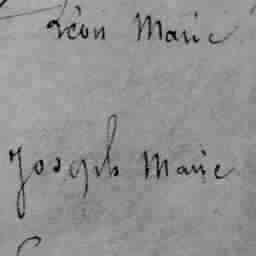 Léon Marie
Joseph Marie